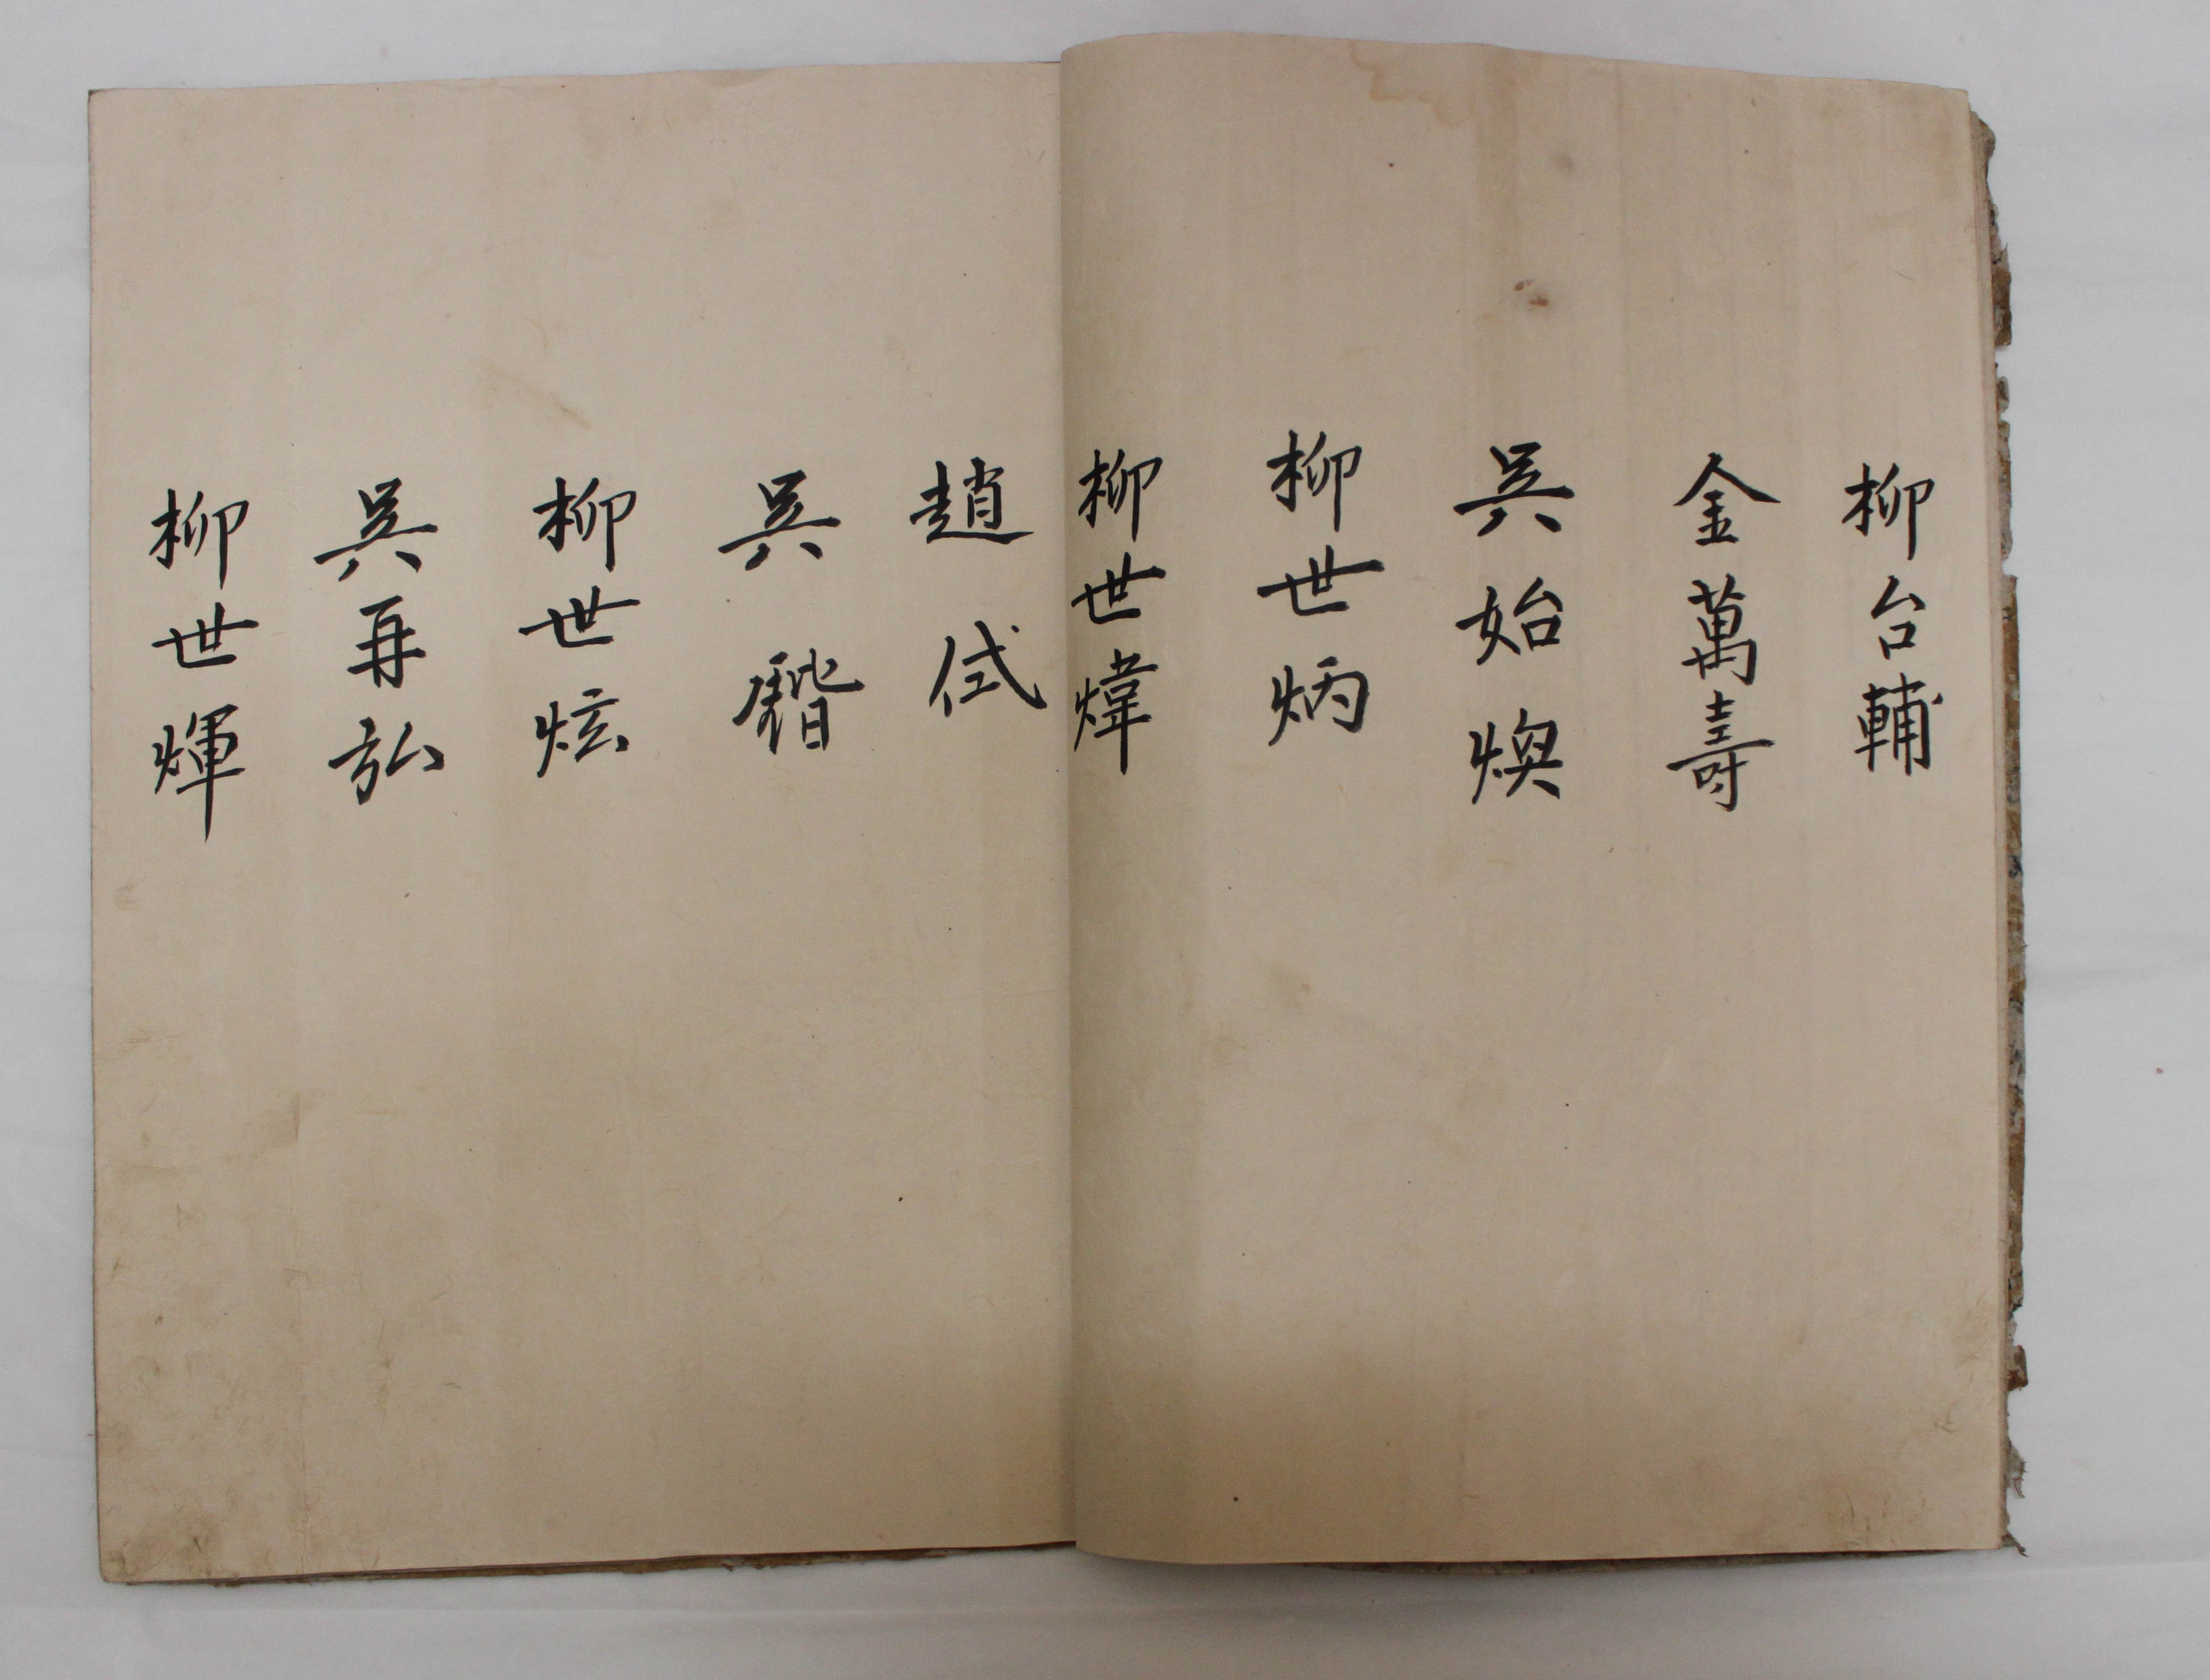 柳台輔
金萬壽
吳始煥
柳世炳
柳世煒
趙侙
吳
柳世炫
吳再弘
柳世煇